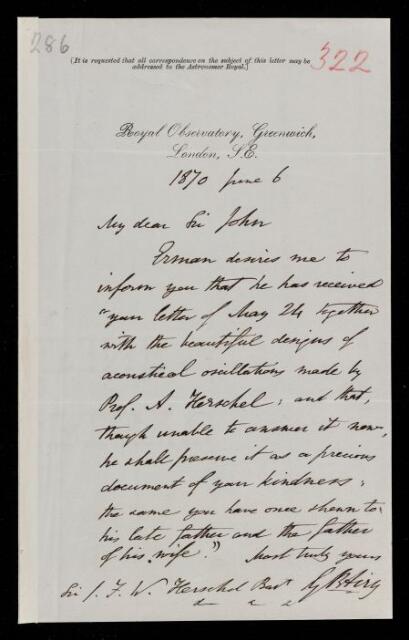 286
322
[It is requested that all correspondence on the subject of this letter may be
addressed to the Astronomer Royal.]
Royal Observatory, Greenwich,
London, S.E.
1870 June 6
My dear Sir John
Erman desires me to
inform you that he has received
"your letter of May 24 together
with the beautiful designs of
acoustical oscillations made by
Prof. A. Herschel; and that,
though unable to answer it now,
he shall preserve it as a precious
document of your kindness;
the same you have once shewn to
his late father and the father
of his wife."
Most truly yours
G B Airy
Sir J. F. W. Herschel Bart